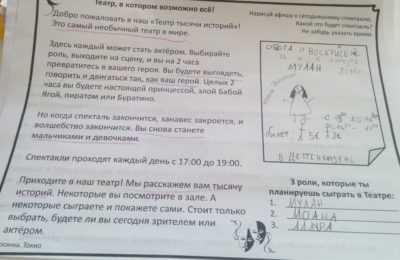 Театр, в котором возможно всё!
Добро пожаловать в наш «Театр тысячи историй»!
Это самый необычный театр в мире.
Здесь каждый может стать актёром. Выбирайте
роль, выходите на сцену, и вы на 2 часа
превратитесь в вашего героя. Вы будете выглядеть,
говорить и двигаться так, как ваш герой. Целых 2
часа вы будете настоящей принцессой, злой Бабой
Ягой, пиратом или Буратино.
Но когда спектакль закончится, занавес закроется, и
волшебство закончится. Вы снова станете
мальчиками и девочками.
Спектакли проходят каждый день с 17:00 до 19:00.
Приходите в наш театр! Мы расскажем вам тысячу
историй. Некоторые вы посмотрите в зале. А
некоторые сыграете и покажете сами. Стоит только
выбрать, будете ли вы сегодня зрителем или
актёром.
Нарисуй афишу к сегодняшнему спектаклю.
Какой это будет спектакль?
Не забудь указать время.
МУЛАН
билет
3 роли, которые ты
планируешь сыграть в Театре:
1. МУЛАН
2. МОАНА
3.
Токио